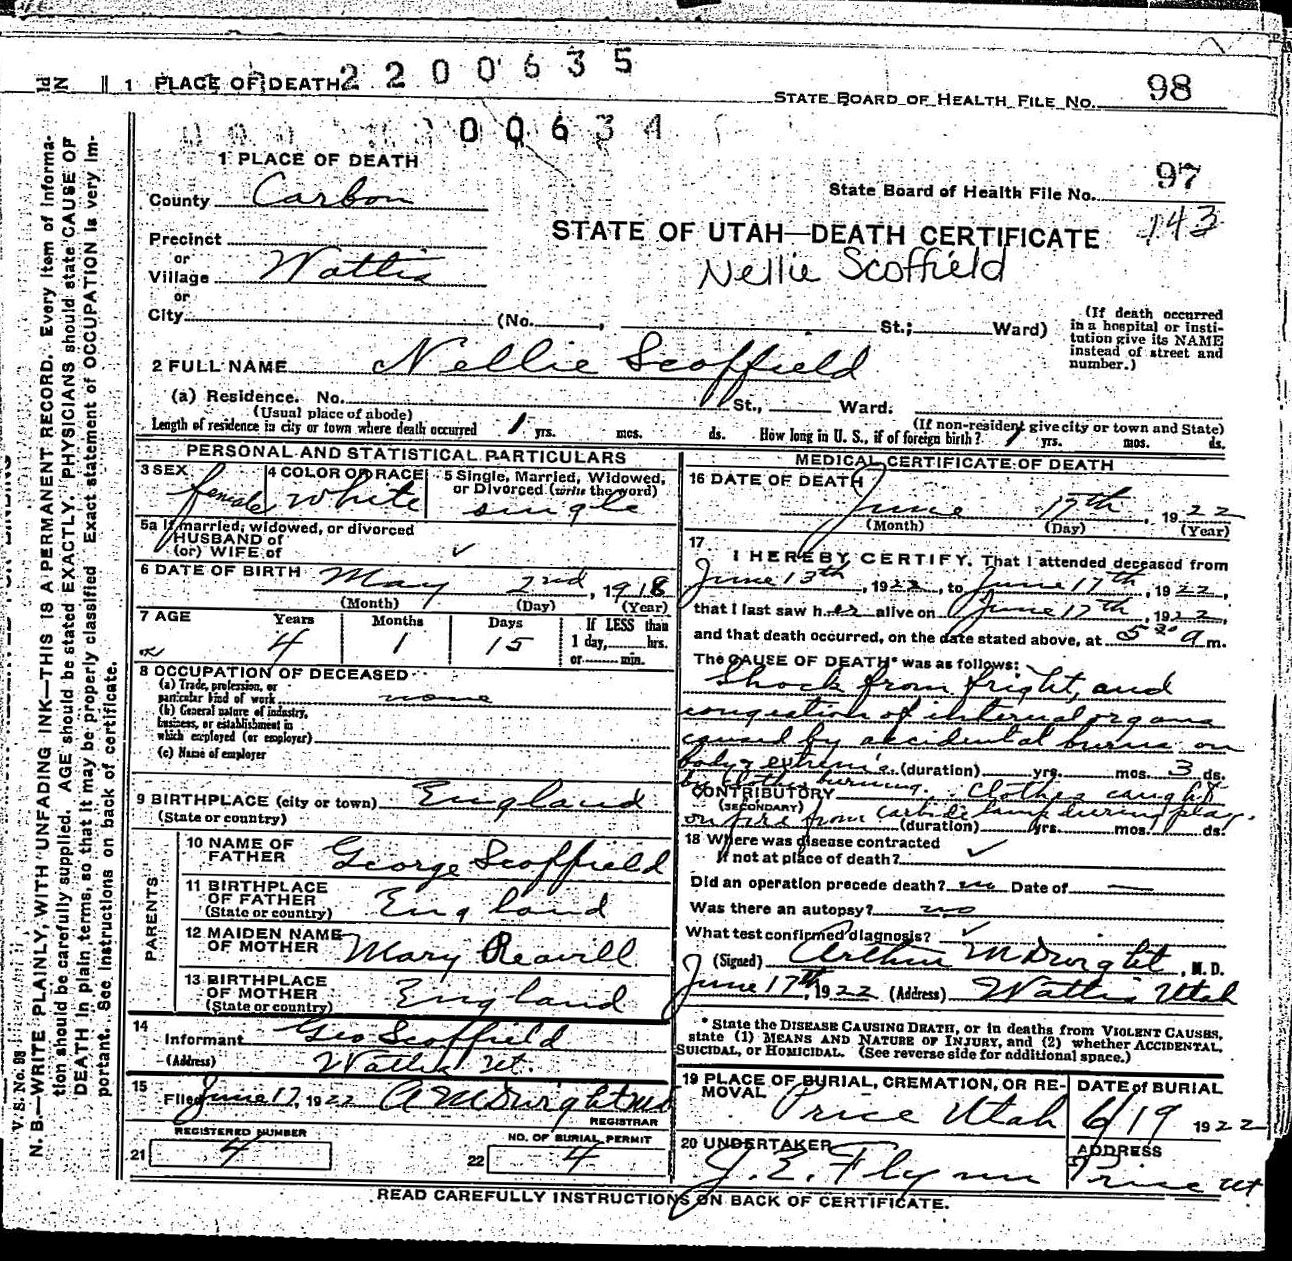 1 PLACE OF DEATH 2200635
STATE BOARD OF HEALTH FILE NO. 98
00634
1 PLACE OF DEATH
State Board of Health File No. 97
143
County Carbon
STATE OF UTAH—DEATH CERTIFICATE
Nellie Scoffield
Precinct
or
Village Wattis
or
City (No. , St.; Ward)
(If death occurred in a hospital or institution give its NAME instead of street and number.)
2 FULL NAME Nellie Scoffield
(a) Residence. No. St., Ward.
(Usual place of abode) (If non-resident give city or town and State)
Length of residence in city or town where death occurred 1 yrs. mos. ds. How long in U. S., if of foreign birth? 1 yrs. mos. ds.
PERSONAL AND STATISTICAL PARTICULARS
3 SEX female
4 COLOR OR RACE White
5 Single, Married, Widowed, or Divorced (write the word) single
5a If married, widowed, or divorced
HUSBAND of
(or) WIFE of ✓
6 DATE OF BIRTH May 2nd, 1918
(Month) (Day) (Year)
7 AGE Years 4 Months 1 Days 15 If LESS than 1 day, hrs. or min.
8 OCCUPATION OF DECEASED
(a) Trade, profession, or particular kind of work none
(b) General nature of industry, business, or establishment in which employed (or employer)
(c) Name of employer
9 BIRTHPLACE (city or town) England
(State or country)
PARENTS
10 NAME OF FATHER George Scoffield
11 BIRTHPLACE OF FATHER England
(State or country)
12 MAIDEN NAME OF MOTHER Mary Reavill
13 BIRTHPLACE OF MOTHER England
(State or country)
14
Informant Geo Scoffield
(Address) Wattis Ut.
15
Filed June 17, 1922 A M Dwight MD
REGISTRAR
REGISTERED NUMBER
21 4
NO. OF BURIAL PERMIT
22 4
MEDICAL CERTIFICATE OF DEATH
16 DATE OF DEATH
June 17th, 1922
(Month) (Day) (Year)
17
I HEREBY CERTIFY, That I attended deceased from
June 13th, 1922, to June 17th, 1922,
that I last saw her alive on June 17th, 1922,
and that death occurred, on the date stated above, at 5 30 a m.
The CAUSE OF DEATH* was as follows:
Shock from fright, and
congestion of internal organs
caused by accidental burns on
body & extremis. (duration) yrs. mos. 3 ds.
by cloths burning.
CONTRIBUTORY Clothes caught
(SECONDARY)
on fire from carbide lamp during play.
(duration) yrs. mos. ds.
18 Where was disease contracted
if not at place of death? ✓
Did an operation precede death? no Date of —
Was there an autopsy? no
What test confirmed diagnosis? ✓
(Signed) Arthur M Dwight, M. D.
June 17th, 1922 (Address) Wattis Utah
* State the DISEASE CAUSING DEATH, or in deaths from VIOLENT CAUSES,
state (1) MEANS AND NATURE OF INJURY, and (2) whether ACCIDENTAL,
SUICIDAL, or HOMICIDAL. (See reverse side for additional space.)
19 PLACE OF BURIAL, CREMATION, OR REMOVAL Price Utah
DATE of BURIAL 6/19 1922
20 UNDERTAKER J. E. Flynn
ADDRESS Price Ut
READ CAREFULLY INSTRUCTIONS ON BACK OF CERTIFICATE.
V. S. No. 98
N. B.—WRITE PLAINLY, WITH UNFADING INK—THIS IS A PERMANENT RECORD. Every item of informa-
tion should be carefully supplied. AGE should be stated EXACTLY. PHYSICIANS should state CAUSE OF
DEATH in plain terms, so that it may be properly classified. Exact statement of OCCUPATION is very im-
portant. See instructions on back of certificate.